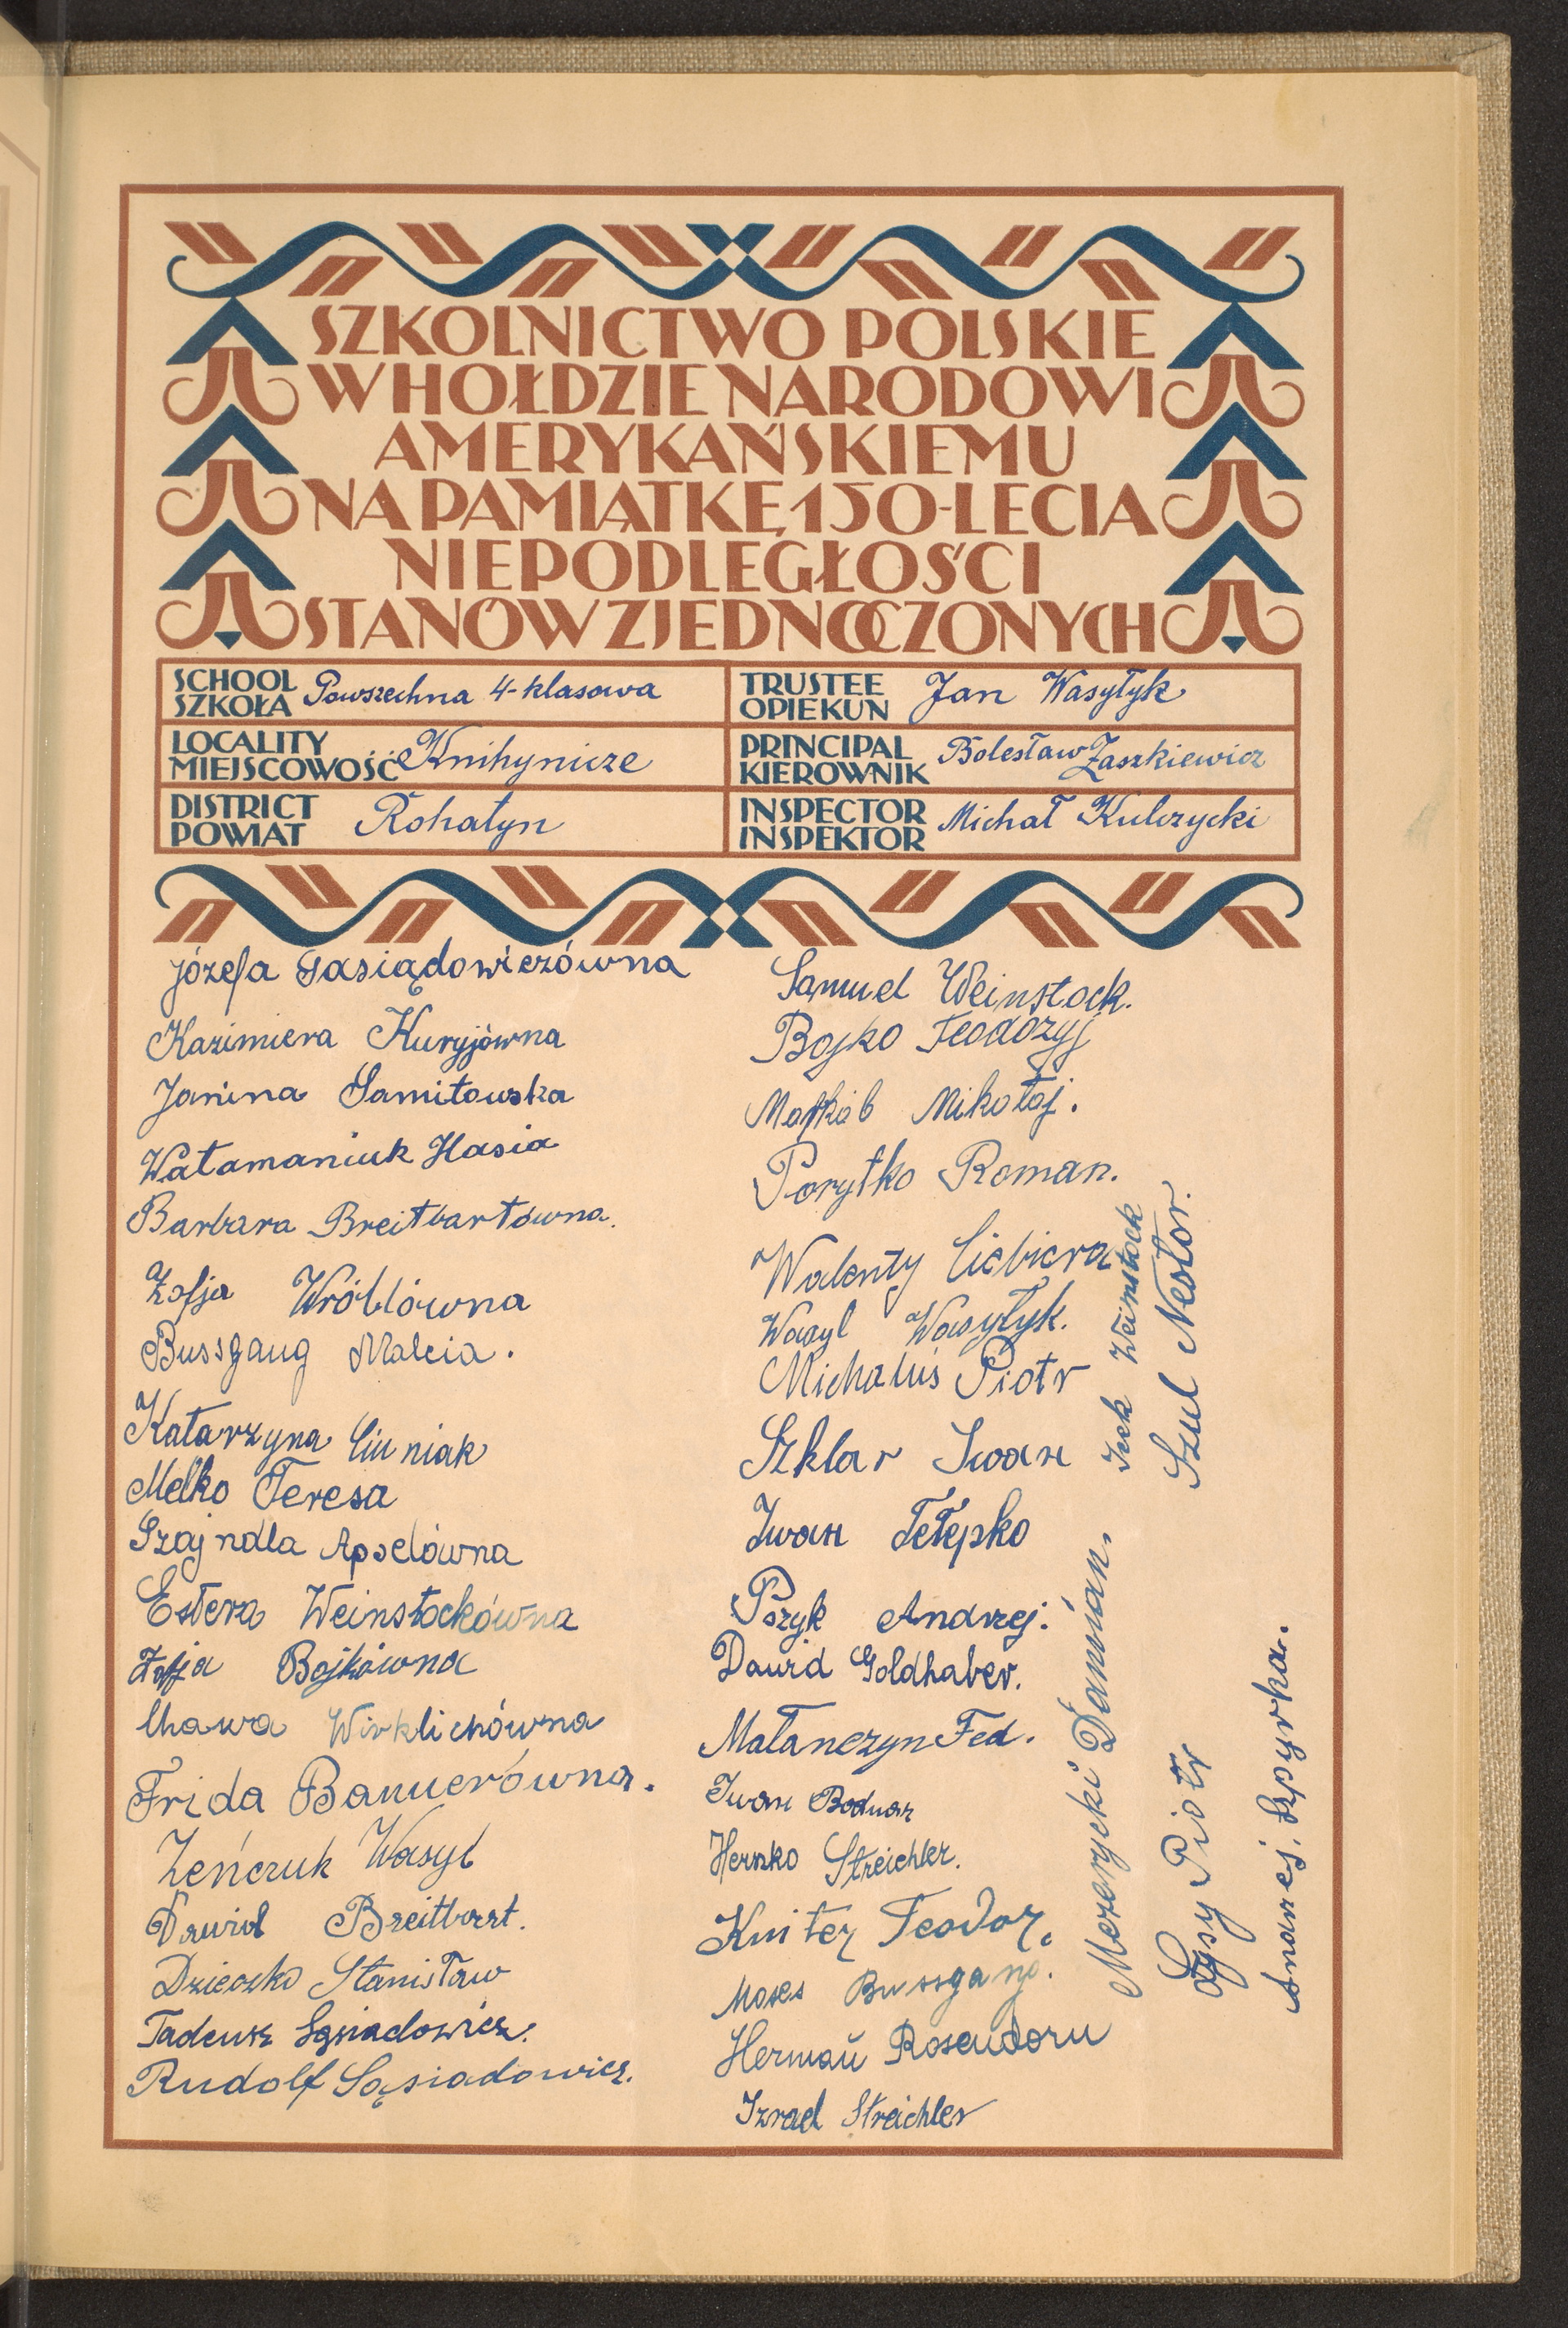 SZKOLNICTWO POLSKIE
W HOŁDZIE NARODOWI
AMERYKAŃSKIEMU
NA PAMIĄTKĘ 150-LECIA
NIEPODLEGŁOŚCI
STANÓW ZJEDNOCZONYCH
SCHOOL
SZKOŁA Powszechna 4-klasowa
LOCALITY
MIEJSCOWOŚĆ Knihynicze
DISTRICT
POWIAT Rohatyn
TRUSTEE
OPIEKUN Jan Wasyłyk
PRINCIPAL
KIEROWNIK Bolesław Zaszkiewicz
INSPECTOR
INSPEKTOR Michał Kulczycki
Józefa Sasiądowiczówna
Kazimiera Kuryjówna
Janina Samitowska
Watamaniuk Hasia
Barbara Breitbartówna.
Zofja Wróblówna
Bussgang Malcia.
Katarzyna Ciuniak
Melko Teresa
Szajndla Apselówna
Estera Weinstockówna
Zofja Bojkówna
Chawa Wirklichówna
Frida Banuerówna.
Zeńczuk Wasyl
Dawid Breitbart.
Dzieczko Stanisław
Tadeusz Sąsiadowicz.
Rudolf Sąsiadowicz.
Samuel Weinstock.
Bojko Teodozyj
Mikołaj.
Porytko Roman.
Walenty Ciebiera
Wasyl Wasyłyk.
Michaluś Piotr
Szklar Iwan
Iwan Tełepko
Pszyk Andrzej.
Dawid Goldhaber.
Matanczyn Fed.
Iwan Bodnar
Herszko Streichler.
Kniter Teodor.
Moses Bussgang.
Herman Rosendorn
Izrael Streichler
Icek Weinstock
Szul Nestor.
Mezerycki Damian.
Łysy Piotr
Andrzej. Szpyrka.